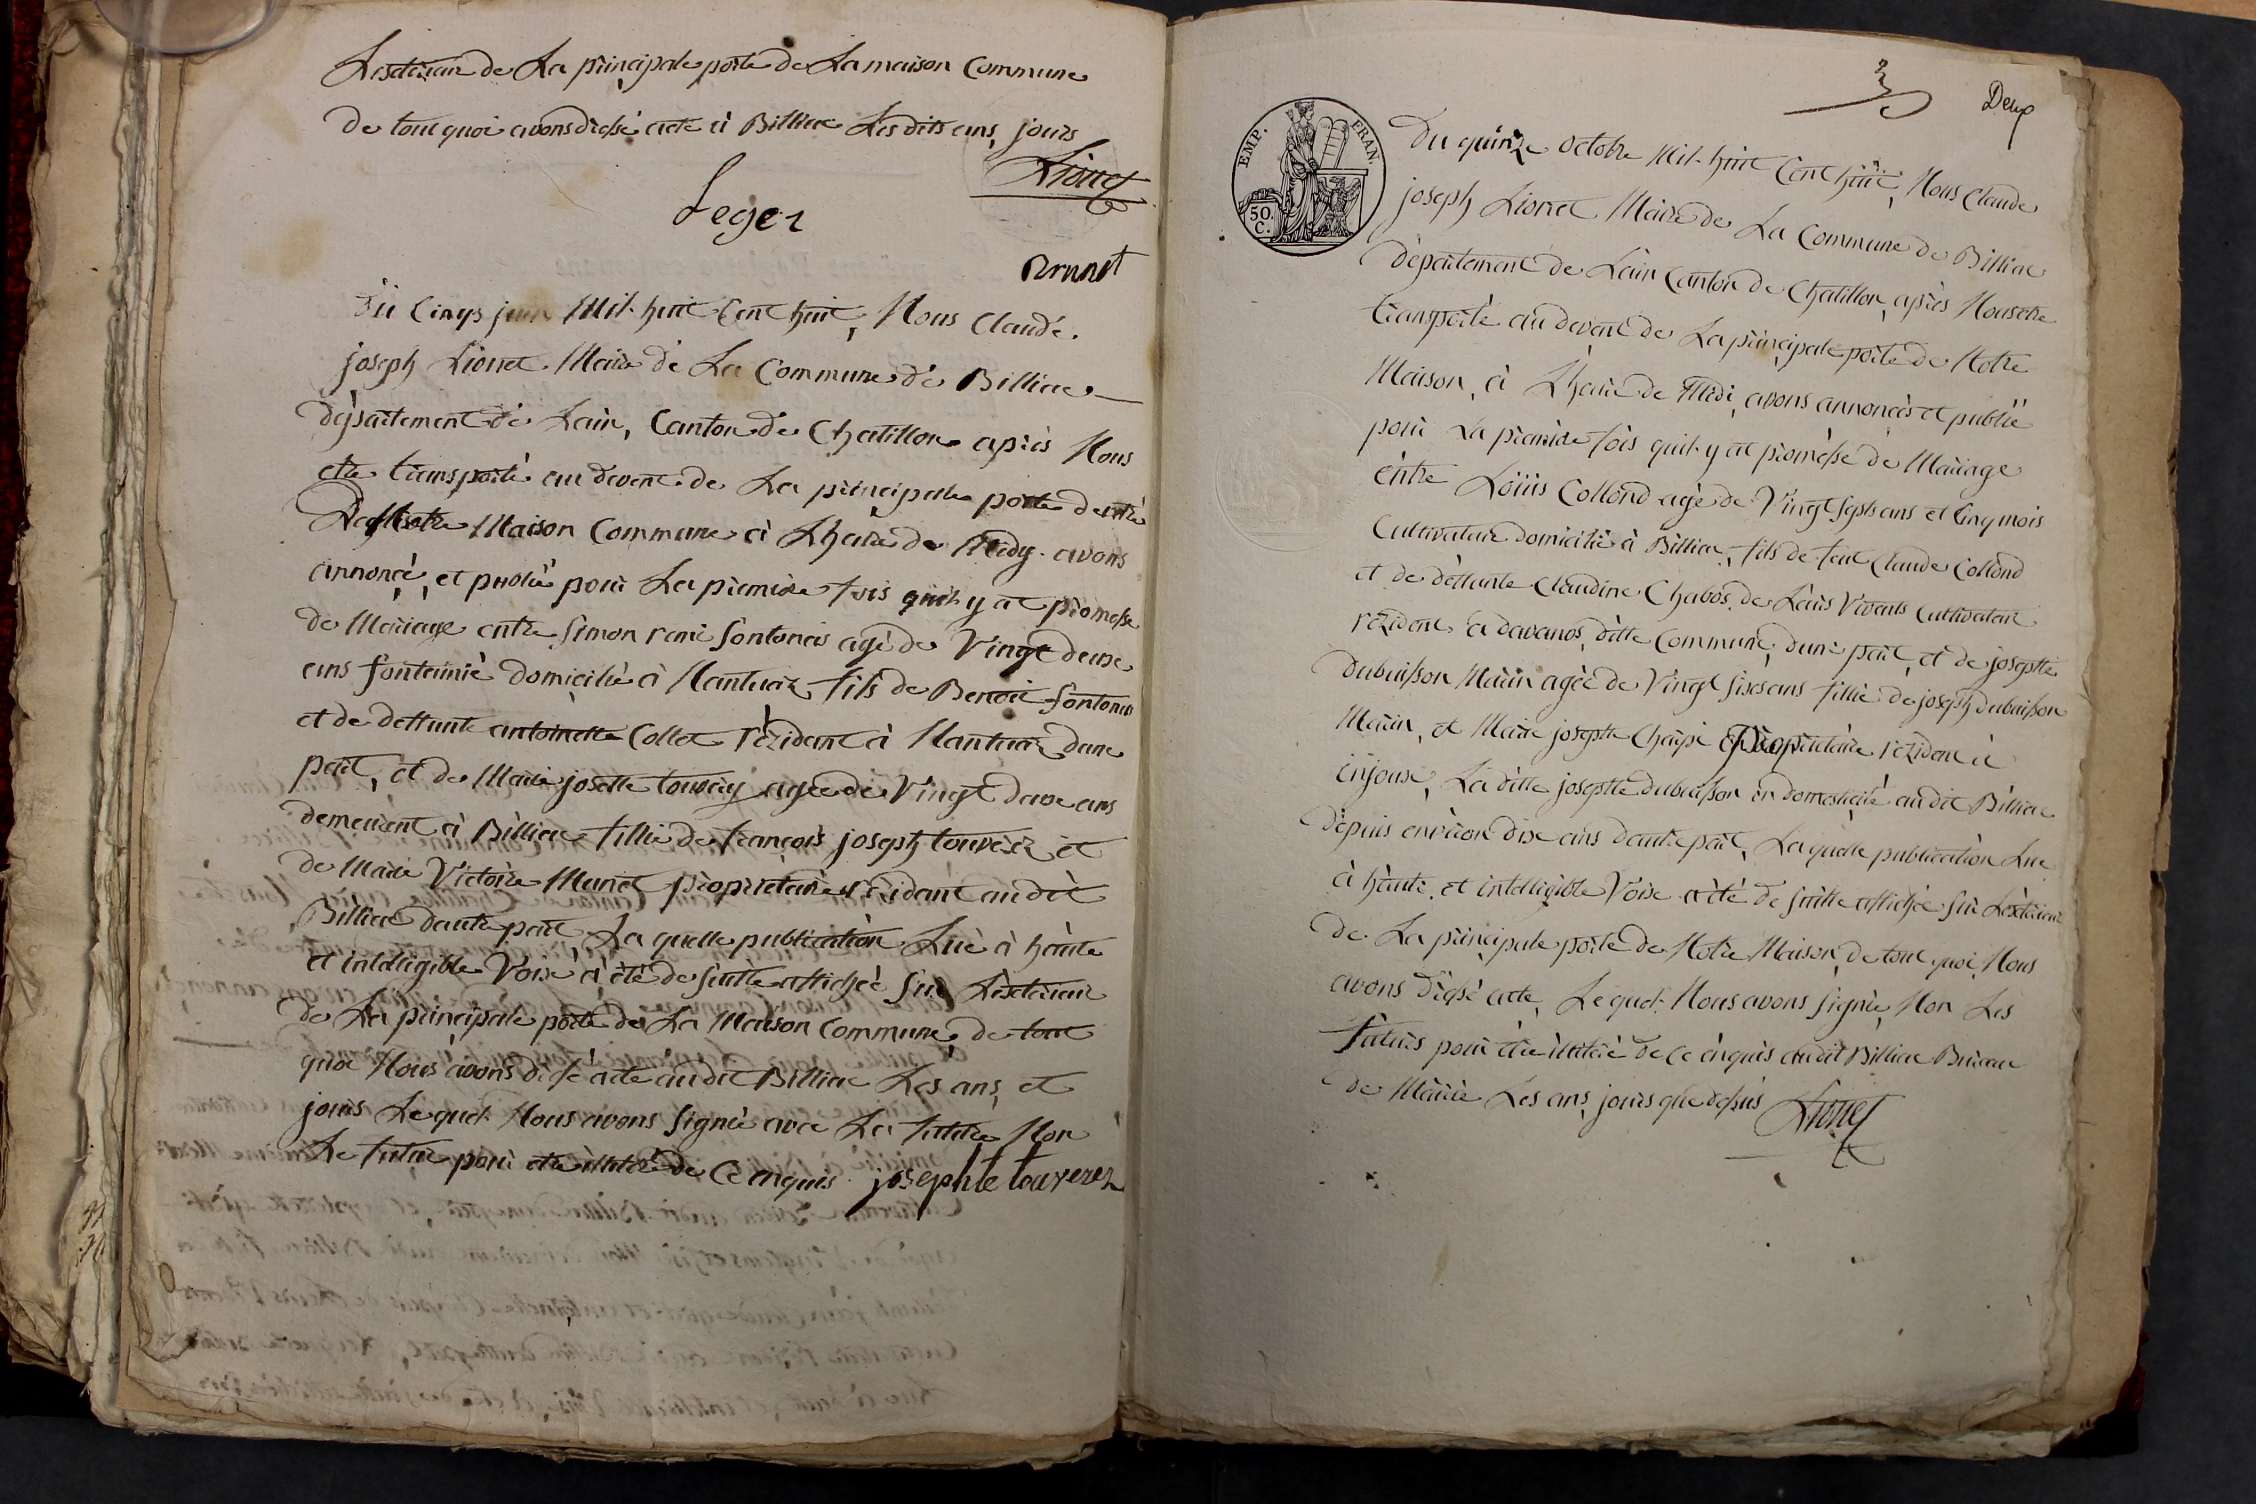 Lextérieur de La principale porte de La maison Commune
de tout quoi avons dréssé acte à Billiac Les dits ans, jours
Lionet
Leger
Brunet
Du Cinqs juin Mil huit Cent huit, Nous Claude
joseph Lionet Maire de La Commune de Billiac
département de Lain, Canton de Chatillon après Nous
etre transporté au devent de La principale porte de
Notre Maison Commune à Lheure de Midy avons
annoncé, et publié pour La premiere fois quil y at promesse
de Mariage entre Simon rené fontanes agé de Vingt deuse
ans fontainié domicilié à Nantuaz fils de Benoit fontanes
et de deffunte antoinette Collet rézidant à Nantuaz dune
part, et de Marie josette touvery agée de Vingt deuse ans
demeurent à Billiac fillie de françois joseph touverez et
de Marie Victoire Muriet propriétaire rézidant audit
Billiac dautre part, La quelle publication Lue à haute
et intelligible Voise à été de suitte affichée sur Lextérieur
de La principale porte de La Maison Commune de tout
quoi Nous avons dressé acte audit Billiac Les ans, et
jours Le quel Nous avons Signé avec La future Non
Le futur pour etre illitéré de Ce enquis. josephte touverez
Deux
EMP. FRAN.
50.
C.
Du quinze octobre Mil huit Cent huit, Nous Claude
joseph Lionet Maire de La Commune de Billiac
département de Lain Canton de Chatillon, après Nous etre
transporté au devent de La principale porte de Notre
Maison, à Lheure de Midi, avons annoncés et publié
pour La premiere fois quil y at promesse de Mariage
entre Loüis Collond agé de Vingt Sept ans et Cinq mois
Cultivateur domicilié à Billiac, fils de feut Claude Collond
et de déffunte Claudine Chabos, de Leurs Vivants Cultivateur
rézident à davanos, ditte Commune, dune part, et de josephte
dubuisson Marin agée de Vingt sixs ans fillie de joseph dubuisson
Marin, et Marie josephte Chapé propriétaire rézident à
injoux, La ditte josephte dubuisson en domesticité au dit Billiac
depuis environ dix ans dautre part, La quelle publication Lue
à haute et intelligible Voise à été de suitte affichée sur Lextérieur
de La principale porte de Notre Maison, de tout quoi, Nous
avons dréssé acte, Le quel Nous avons signé, Non Les
futurs pour etre illitéré de Ce enquis audit Billiac Bureau
de Mairie Les ans, jours que dessus Lionet